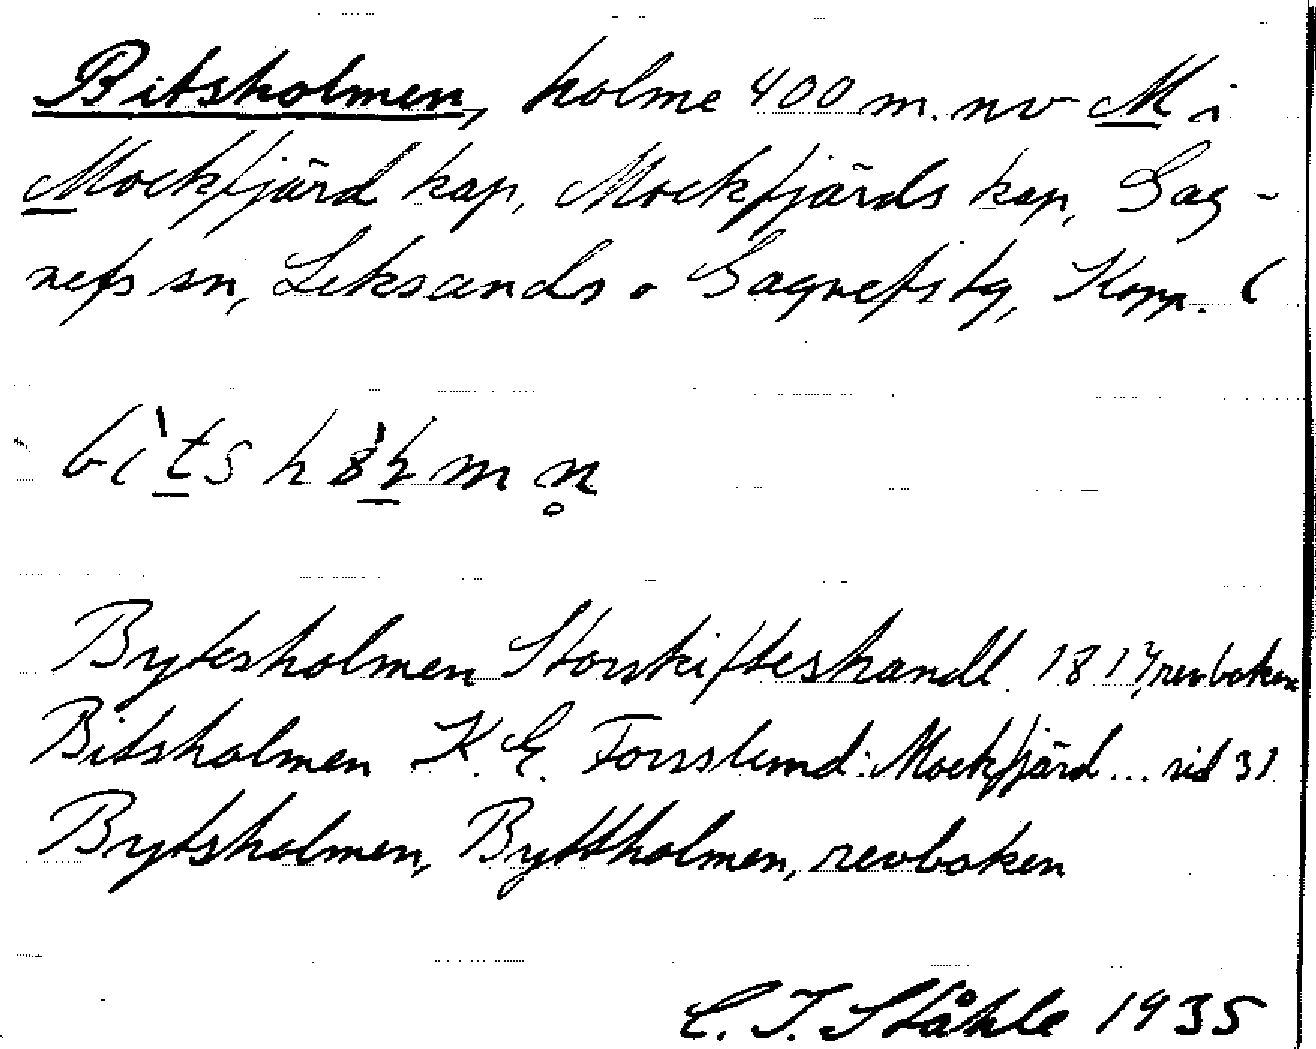 Bitsholmen, holme 400 m. nv M i
Mockfjärd kap, Mockfjärds kap, Gag-
nefs sn, Leksands o Gagnefs tg, Kopp. (
Bytesholmen Storskifteshandl. 1817, revboken
Bitsholmen K. E. Forsslund: Mockfjärd... sid 31
Bytsholmen, Byttholmen, revboken
C. I. Ståhle 1935